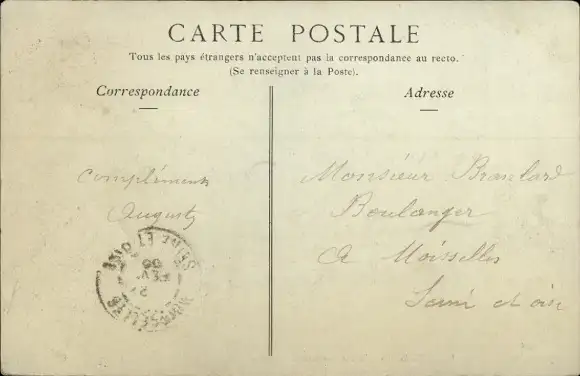 CARTE POSTALE
Tous les pays étrangers n'acceptent pas la correspondance au recto.
(Se renseigner à la Poste).
Correspondance
Adresse
Compliments
Auguste
Monsieur
Boulanger
A Moisselles
Seine et oise
SEINE ET OISE